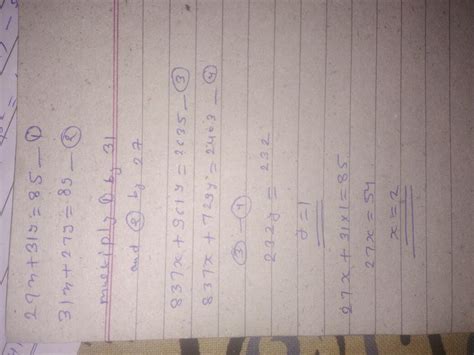 27x+31y=85 — ①
31x+27y=89 — ②
multiply ① by 31
and ② by 27
837x+961y=2635 — ③
837x+729y=2403 — ④
③ - ④
232y = 232
y=1
27x+31x1=85
27x=54
x=2